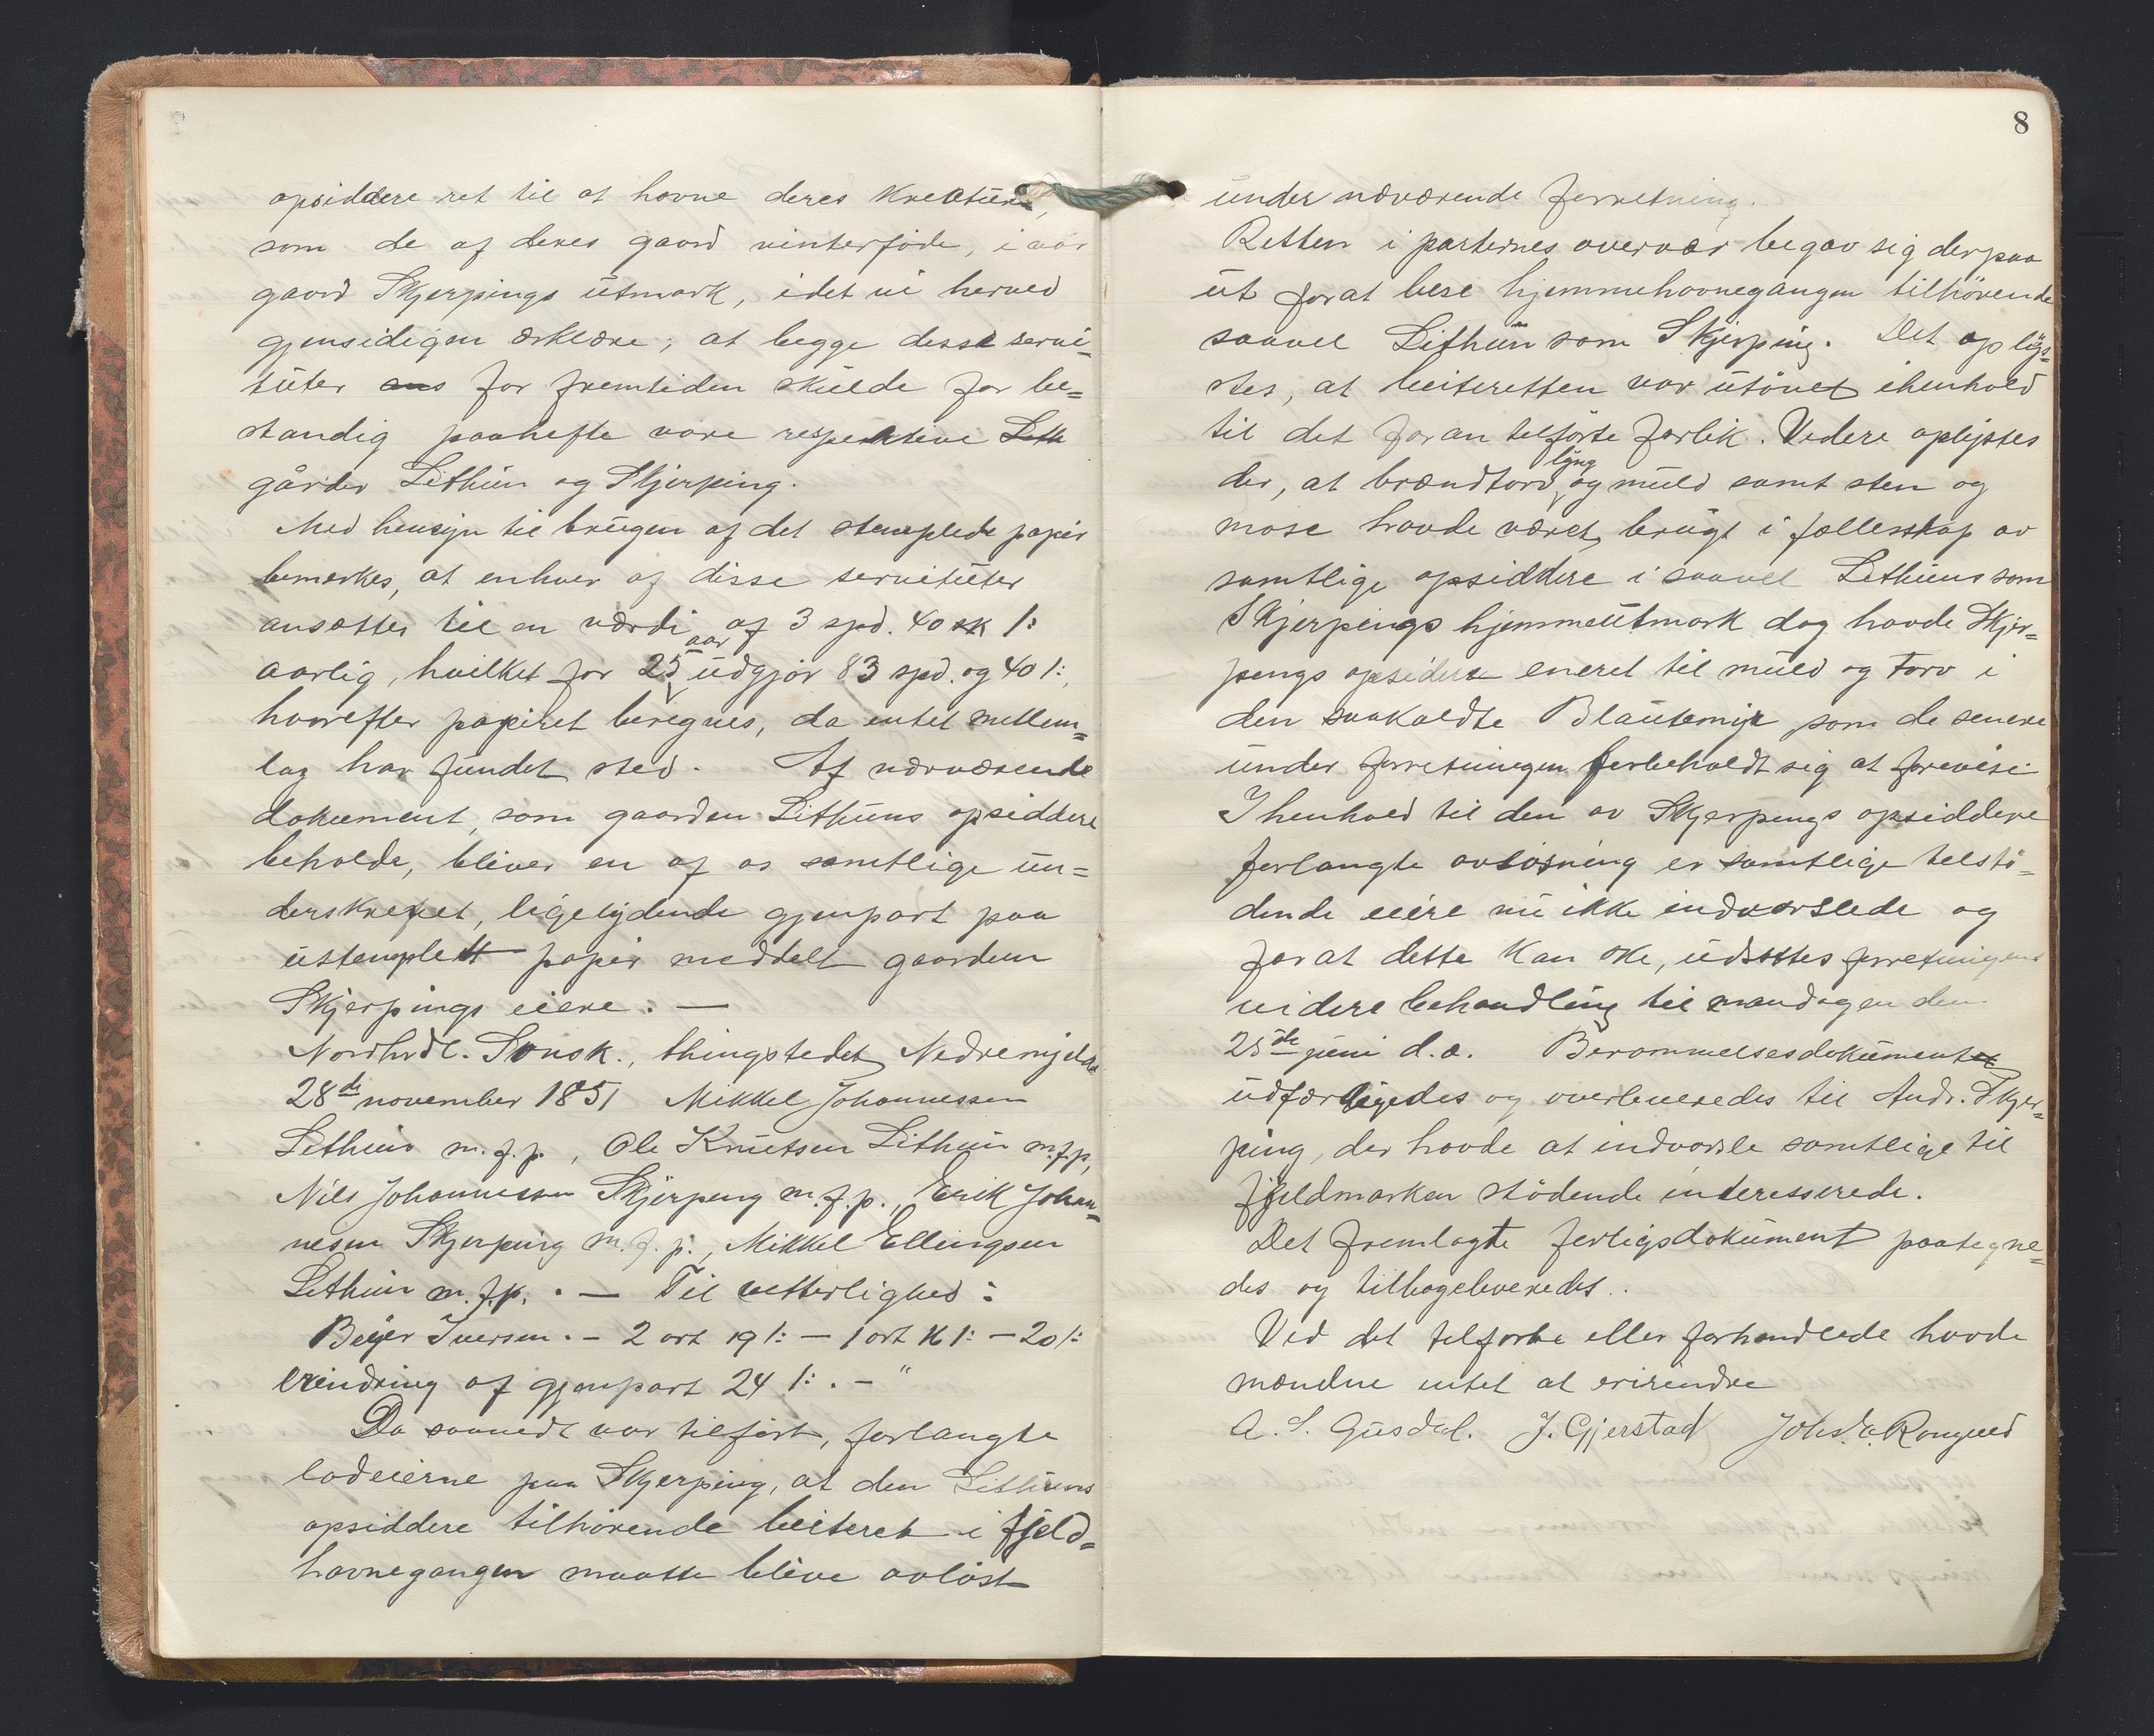 opsiddere ret til at havne deres kreature,
som de af deres gaard vinterføde, i vor
gaard Skjerpings utmark, idet vi herved
gjensidigen erklære; at begge disse servi=
tuter for fremtiden skulde for be=
standig paahefte vore respektive Lith
gårder Lithun og Skjerping.
Med hensyn til brugen af det stemplede papir
bemerkes, at enhver af disse servituter
ansættes til en værdi af 3 spd. 40 sk /:
aarlig, hvilket for 25 aar udgjør 83 spd. og 40 /:,
hvorefter papiret beregnes, da intet mellem=
lag har fundet sted. Af nærværende
dokument, som gaarden Lithuns opsiddere
beholde, bliver en af os samtlige un=
derskrevet, ligelydende gjenpart paa
ustemplett papir meddelt gaarden
Skjerpings eiere. —
Nordhrdl. Sorensk., thingstedet Nedremjelde
28de november 1851 Mikkel Johannessen
Lithun m.f.p., Ole Knutsen Lithun m.f.p,
Nils Johannessen Skjerping m.f.p., Erik Johan=
nesen Skjerping m.f.p., Mikkel Ellingsen
Lithun m.f.p. . — Til vitterlighed :
Beyer Iversen. — 2 ort 19 /: — 1 ort 16 /: — 20 /:
erindring af gjenpart 24 /: . — "
Da saavidt var tilført, forlangte
lodeierne paa Skjerping, at den Lithuns
opsiddere tilhørende beiteret i fjeld=
havnegangen maatte blive avløst
8
under nærværende forretning.
Retten i parternes overvær begav sig derpaa
ut for at bese hjemmehavnegangen tilhørende
saavel Lithun som Skjerping. Det oplys=
stes, at beiteretten var utøvet ihenhold
til det foran tilførte forlik. Videre oplystes
der, at brændtorv, lyng og muld samt sten og
mose havde været brugt i fællesskap av
samtlige opsiddere i saavel Lithuns som
Skjerpings hjemmeutmark dog havde Skjer=
pings opsiddere eneret til muld og torv i
den saakaldte Blautemyr som de senere
under forretningen forbeholdt sig at forevise
I henhold til den av Skjerpings opsiddere
forlangte avløsning er samtlige tilstø=
dende eiere nu ikke indvarslede og
for at dette kan ske, udsættes forretningens
videre behandling til mandagen den
25de juni d.a. Berammelsesdokumentet
udfærdigedes og overleveredes til Andr. Skjer=
ping, der havde at indvarsle samtlige til
fjeldmarken stødende interesserede.
Det fremlagte forligsdokument paategne=
des og tilbageleveredes..
Ved det tilførte eller forhandlede havde
mændne intet at erirendre
A. S. Gusdal. J. Gjerstad Johs. A. Romgued